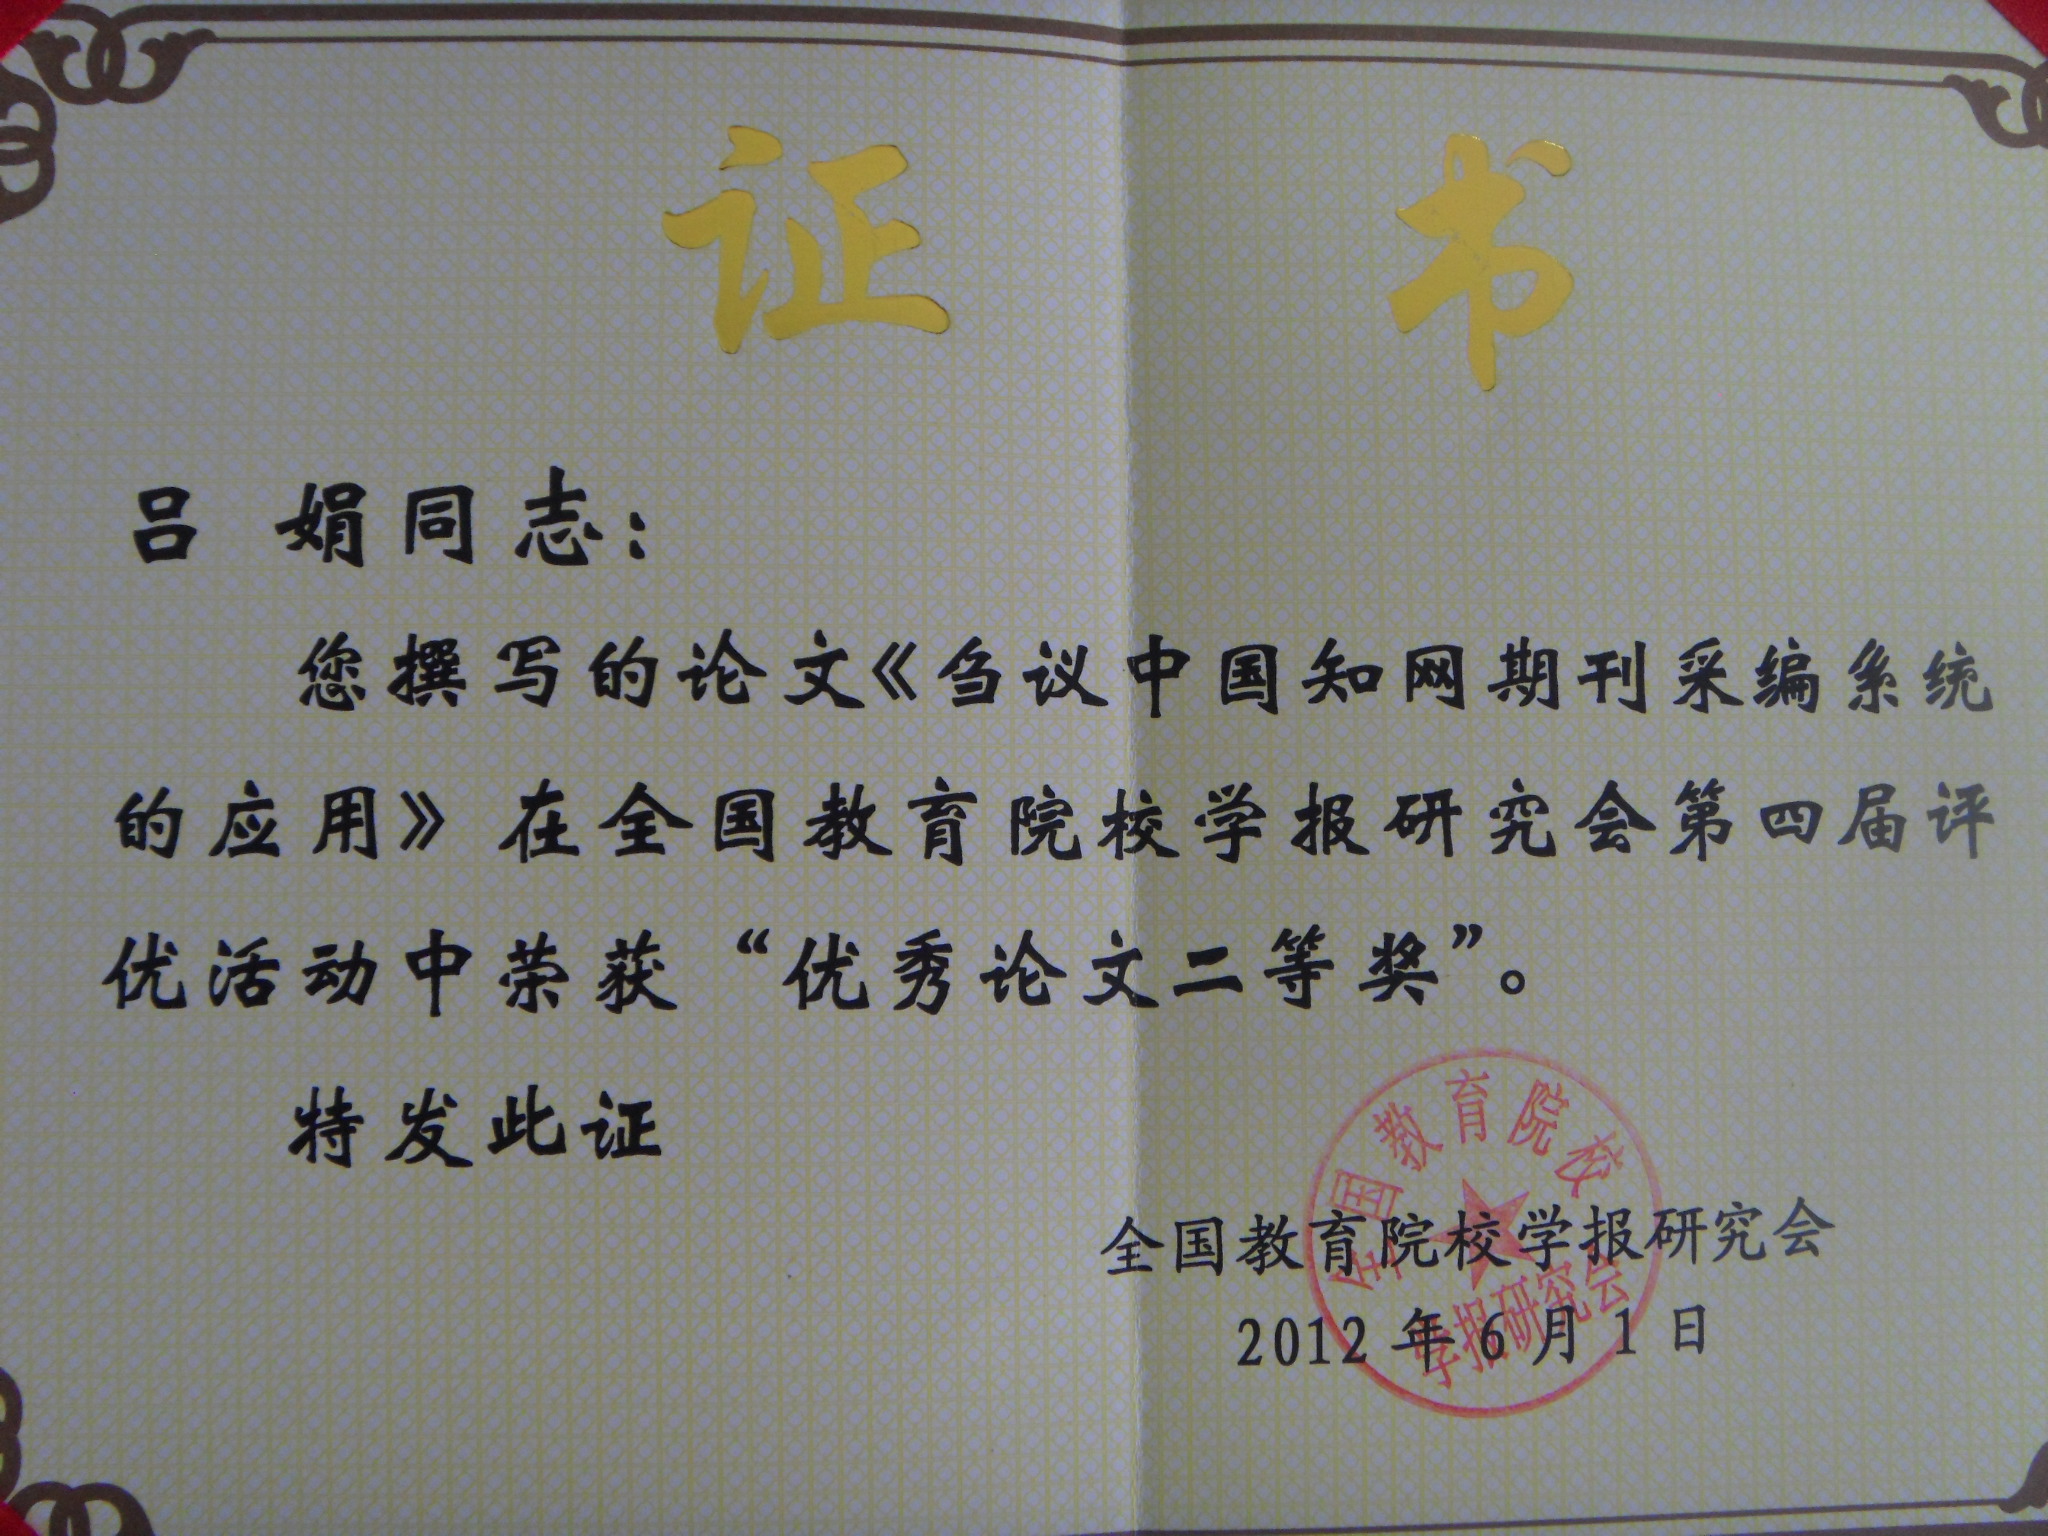 证 书
吕 娟同志：
您撰写的论文《刍议中国知网期刊采编系统
的应用》在全国教育院校学报研究会第四届评
优活动中荣获“优秀论文二等奖”。
特发此证
全国教育院校
学报研究会
全国教育院校学报研究会
2012年6月1日